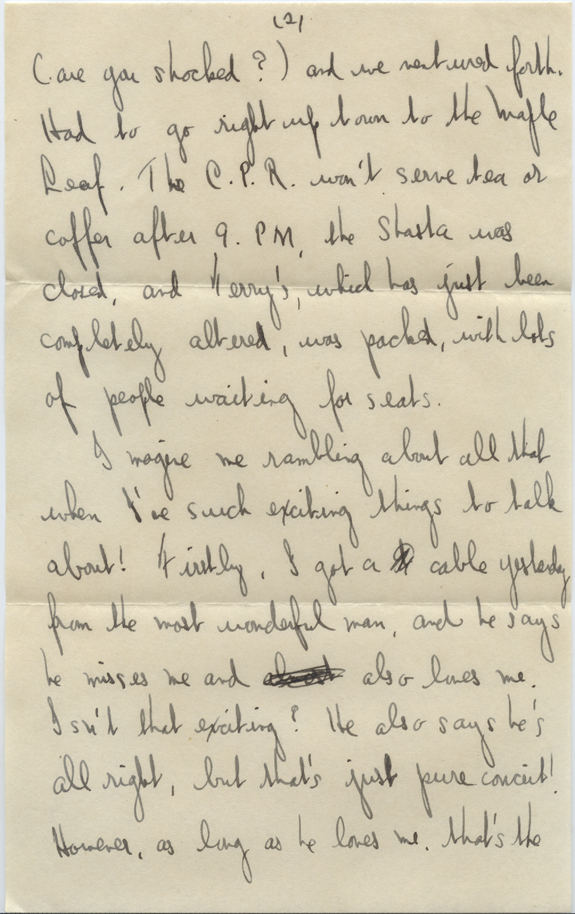 (2)
(are you shocked?) and we ventured forth.
Had to go right up town to the Maple
Leaf. The C.P.R. won't serve tea or
coffee after 9. PM, the Shasta was
closed, and Kerry's, which has just been
completely altered, was packed, with lots
of people waiting for seats.
Imagine me rambling about all that
when I've such exciting things to talk
about! Firstly, I got a cable yesterday
from the most wonderful man, and he says
he misses me and also loves me.
Isn't that exciting? He also says he's
all right, but that's just pure conceit!
However, as long as he loves me. that's the